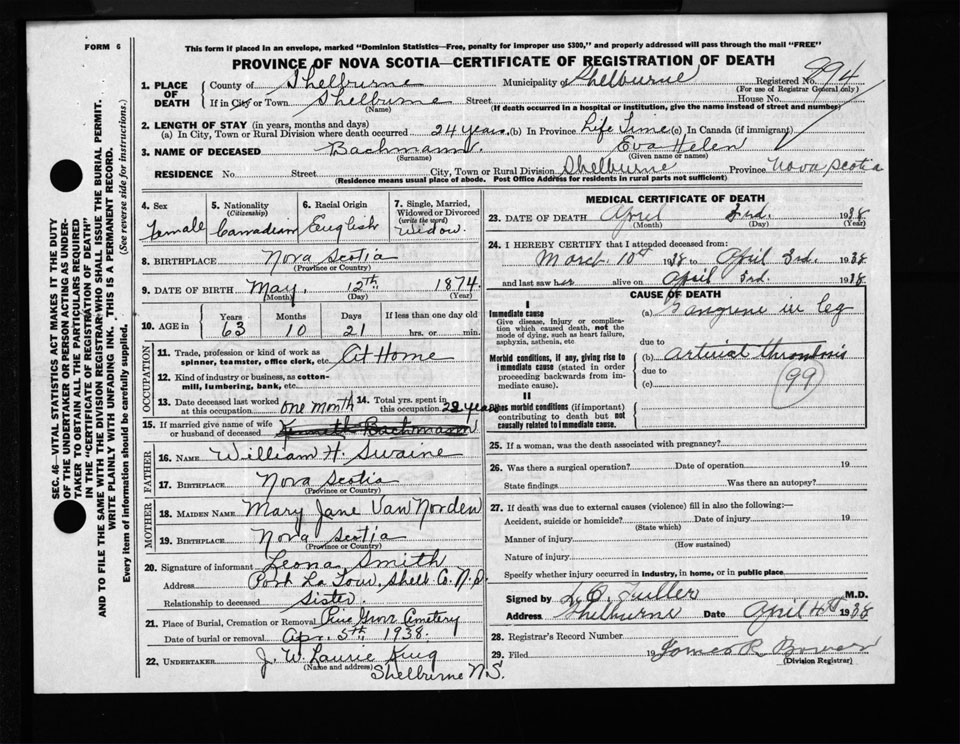 FORM 6
This form if placed in an envelope, marked "Dominion Statistics—Free, penalty for improper use $300," and properly addressed will pass through the mail "FREE"
PROVINCE OF NOVA SCOTIA—CERTIFICATE OF REGISTRATION OF DEATH
SEC. 46—VITAL STATISTICS ACT MAKES IT THE DUTY
OF THE UNDERTAKER OR PERSON ACTING AS UNDER-
TAKER TO OBTAIN ALL THE PARTICULARS REQUIRED
IN THE "CERTIFICATE OF REGISTRATION OF DEATH"
AND TO FILE THE SAME WITH THE DIVISION REGISTRAR WHO SHALL ISSUE THE BURIAL PERMIT.
WRITE PLAINLY WITH UNFADING INK. THIS IS A PERMANENT RECORD.
Every item of information should be carefully supplied. (See reverse side for instructions.)
1. PLACE OF DEATH
County of Shelburne Municipality of Shelburne Registered No. 994
(For use of Registrar General only)
If in City or Town Shelburne Street House No.
(Name) (If death occurred in a hospital or institution, give the name instead of street and number)
2. LENGTH OF STAY (in years, months and days)
(a) In City, Town or Rural Division where death occurred 24 years (b) In Province Life Time (c) In Canada (if immigrant)
3. NAME OF DECEASED Bachmann Eva Helen
(Surname) (Given name or names)
RESIDENCE No. Street City, Town or Rural Division Shelburne Province Nova Scotia
(Residence means usual place of abode. Post Office Address for residents in rural parts not sufficient)
4. Sex Female
5. Nationality (Citizenship) Canadian
6. Racial Origin English
7. Single, Married, Widowed or Divorced (write the word) Widow
8. BIRTHPLACE Nova Scotia
(Province or Country)
9. DATE OF BIRTH May 12th 1874
(Month) (Day) (Year)
10. AGE in Years 63 Months 10 Days 21 If less than one day old hrs. or min.
OCCUPATION
11. Trade, profession or kind of work as spinner, teamster, office clerk, etc. At Home
12. Kind of industry or business, as cotton-mill, lumbering, bank, etc.
13. Date deceased last worked at this occupation one month
14. Total yrs. spent in this occupation 22 years
15. If married give name of wife or husband of deceased Kenneth Bachmann
FATHER
16. NAME William H. Swaine
17. BIRTHPLACE Nova Scotia
(Province or Country)
MOTHER
18. MAIDEN NAME Mary Jane Van Norden
19. BIRTHPLACE Nova Scotia
(Province or Country)
20. Signature of informant Leona Smith
Address Port La Tour, Shelb Co. N.S.
Relationship to deceased Sister
21. Place of Burial, Cremation or Removal Pine Grove Cemetery
Date of burial or removal Apr. 5th, 1938.
22. UNDERTAKER J. W. Laurie King
(Name and address) Shelburne N.S.
MEDICAL CERTIFICATE OF DEATH
23. DATE OF DEATH April 3rd. 1938
(Month) (Day) (Year)
24. I HEREBY CERTIFY that I attended deceased from:
March 10th 1938 to April 3rd. 1938
and last saw her alive on April 3rd. 1938
CAUSE OF DEATH
I
Immediate cause
Give disease, injury or complication which caused death, not the mode of dying, such as heart failure, asphyxia, asthenia, etc
(a) Gangrene in leg
due to
Morbid conditions, if any, giving rise to immediate cause (stated in order proceeding backwards from immediate cause).
(b) arterial thrombosis
due to
(c) 99
II
Other morbid conditions (if important) contributing to death but not causally related to immediate cause.
25. If a woman, was the death associated with pregnancy?
26. Was there a surgical operation? Date of operation 19
State findings Was there an autopsy?
27. If death was due to external causes (violence) fill in also the following:—
Accident, suicide or homicide? Date of injury 19
(State which)
Manner of injury
(How sustained)
Nature of injury
Specify whether injury occurred in industry, in home, or in public place
Signed by L. O. Fuller M.D.
Address Shelburne Date April 4th 1938
28. Registrar's Record Number
29. Filed 19 James R. Bower
(Division Registrar)